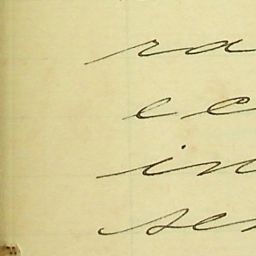 ra
ee
in
ser